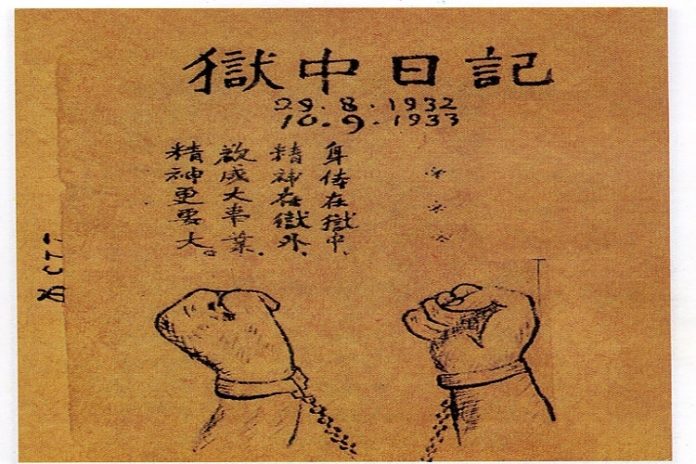 獄中日記
29.8.1932
10.9.1933
身体在獄中、
精神在獄外、
欲成大事業、
精神更要大。